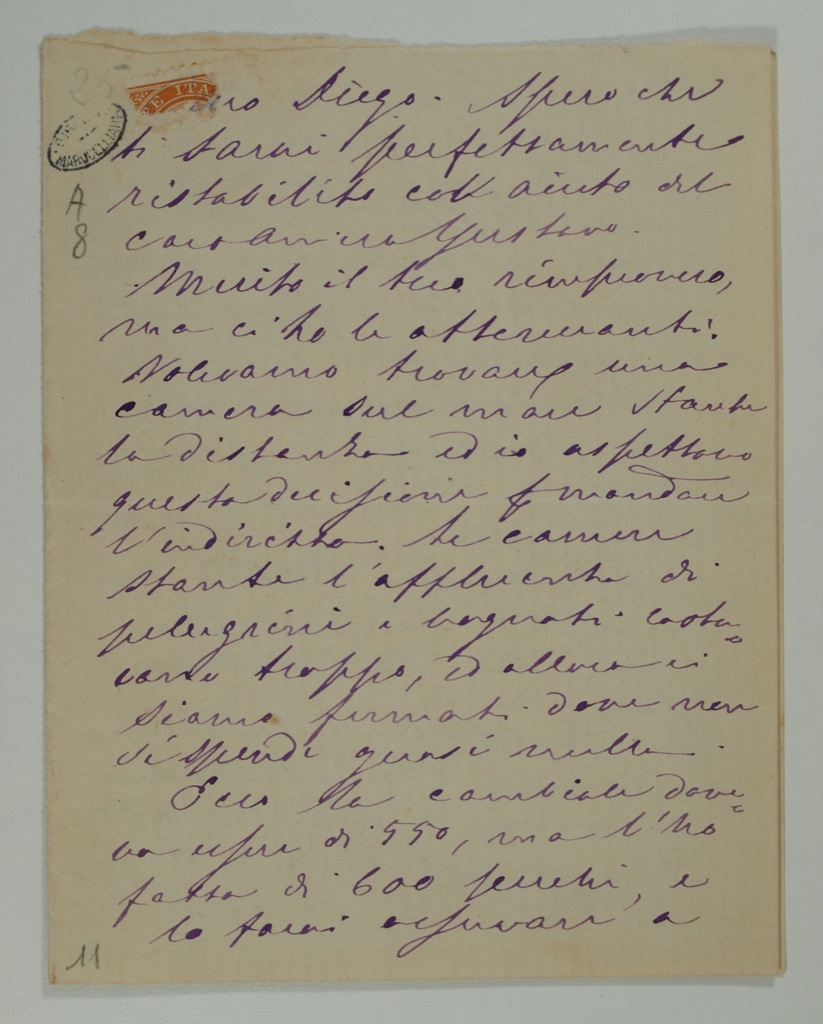 25
RE ITA
MARUCELLIANA
A
8
Diego. Spero che
ti sarai perfettamente
ristabilito coll'aiuto del
caro amico Gustavo.
Merito il tuo rimprovero,
ma ci ho le attenuanti.
Volevamo trovare una
camera sul mare stante
la distanza ed io aspettavo
questa decisione mandare
l'indirizzo. Le camere
stante l'affluenza di
pelegrini e bagnati costa=
vano troppo, ed allora ci
siamo fermati dove non
si spende quasi nulla.
Ecco la cambiale dove=
va essere di 550, ma l'ho
fatta di 600 perchè, e
lo farai a
11